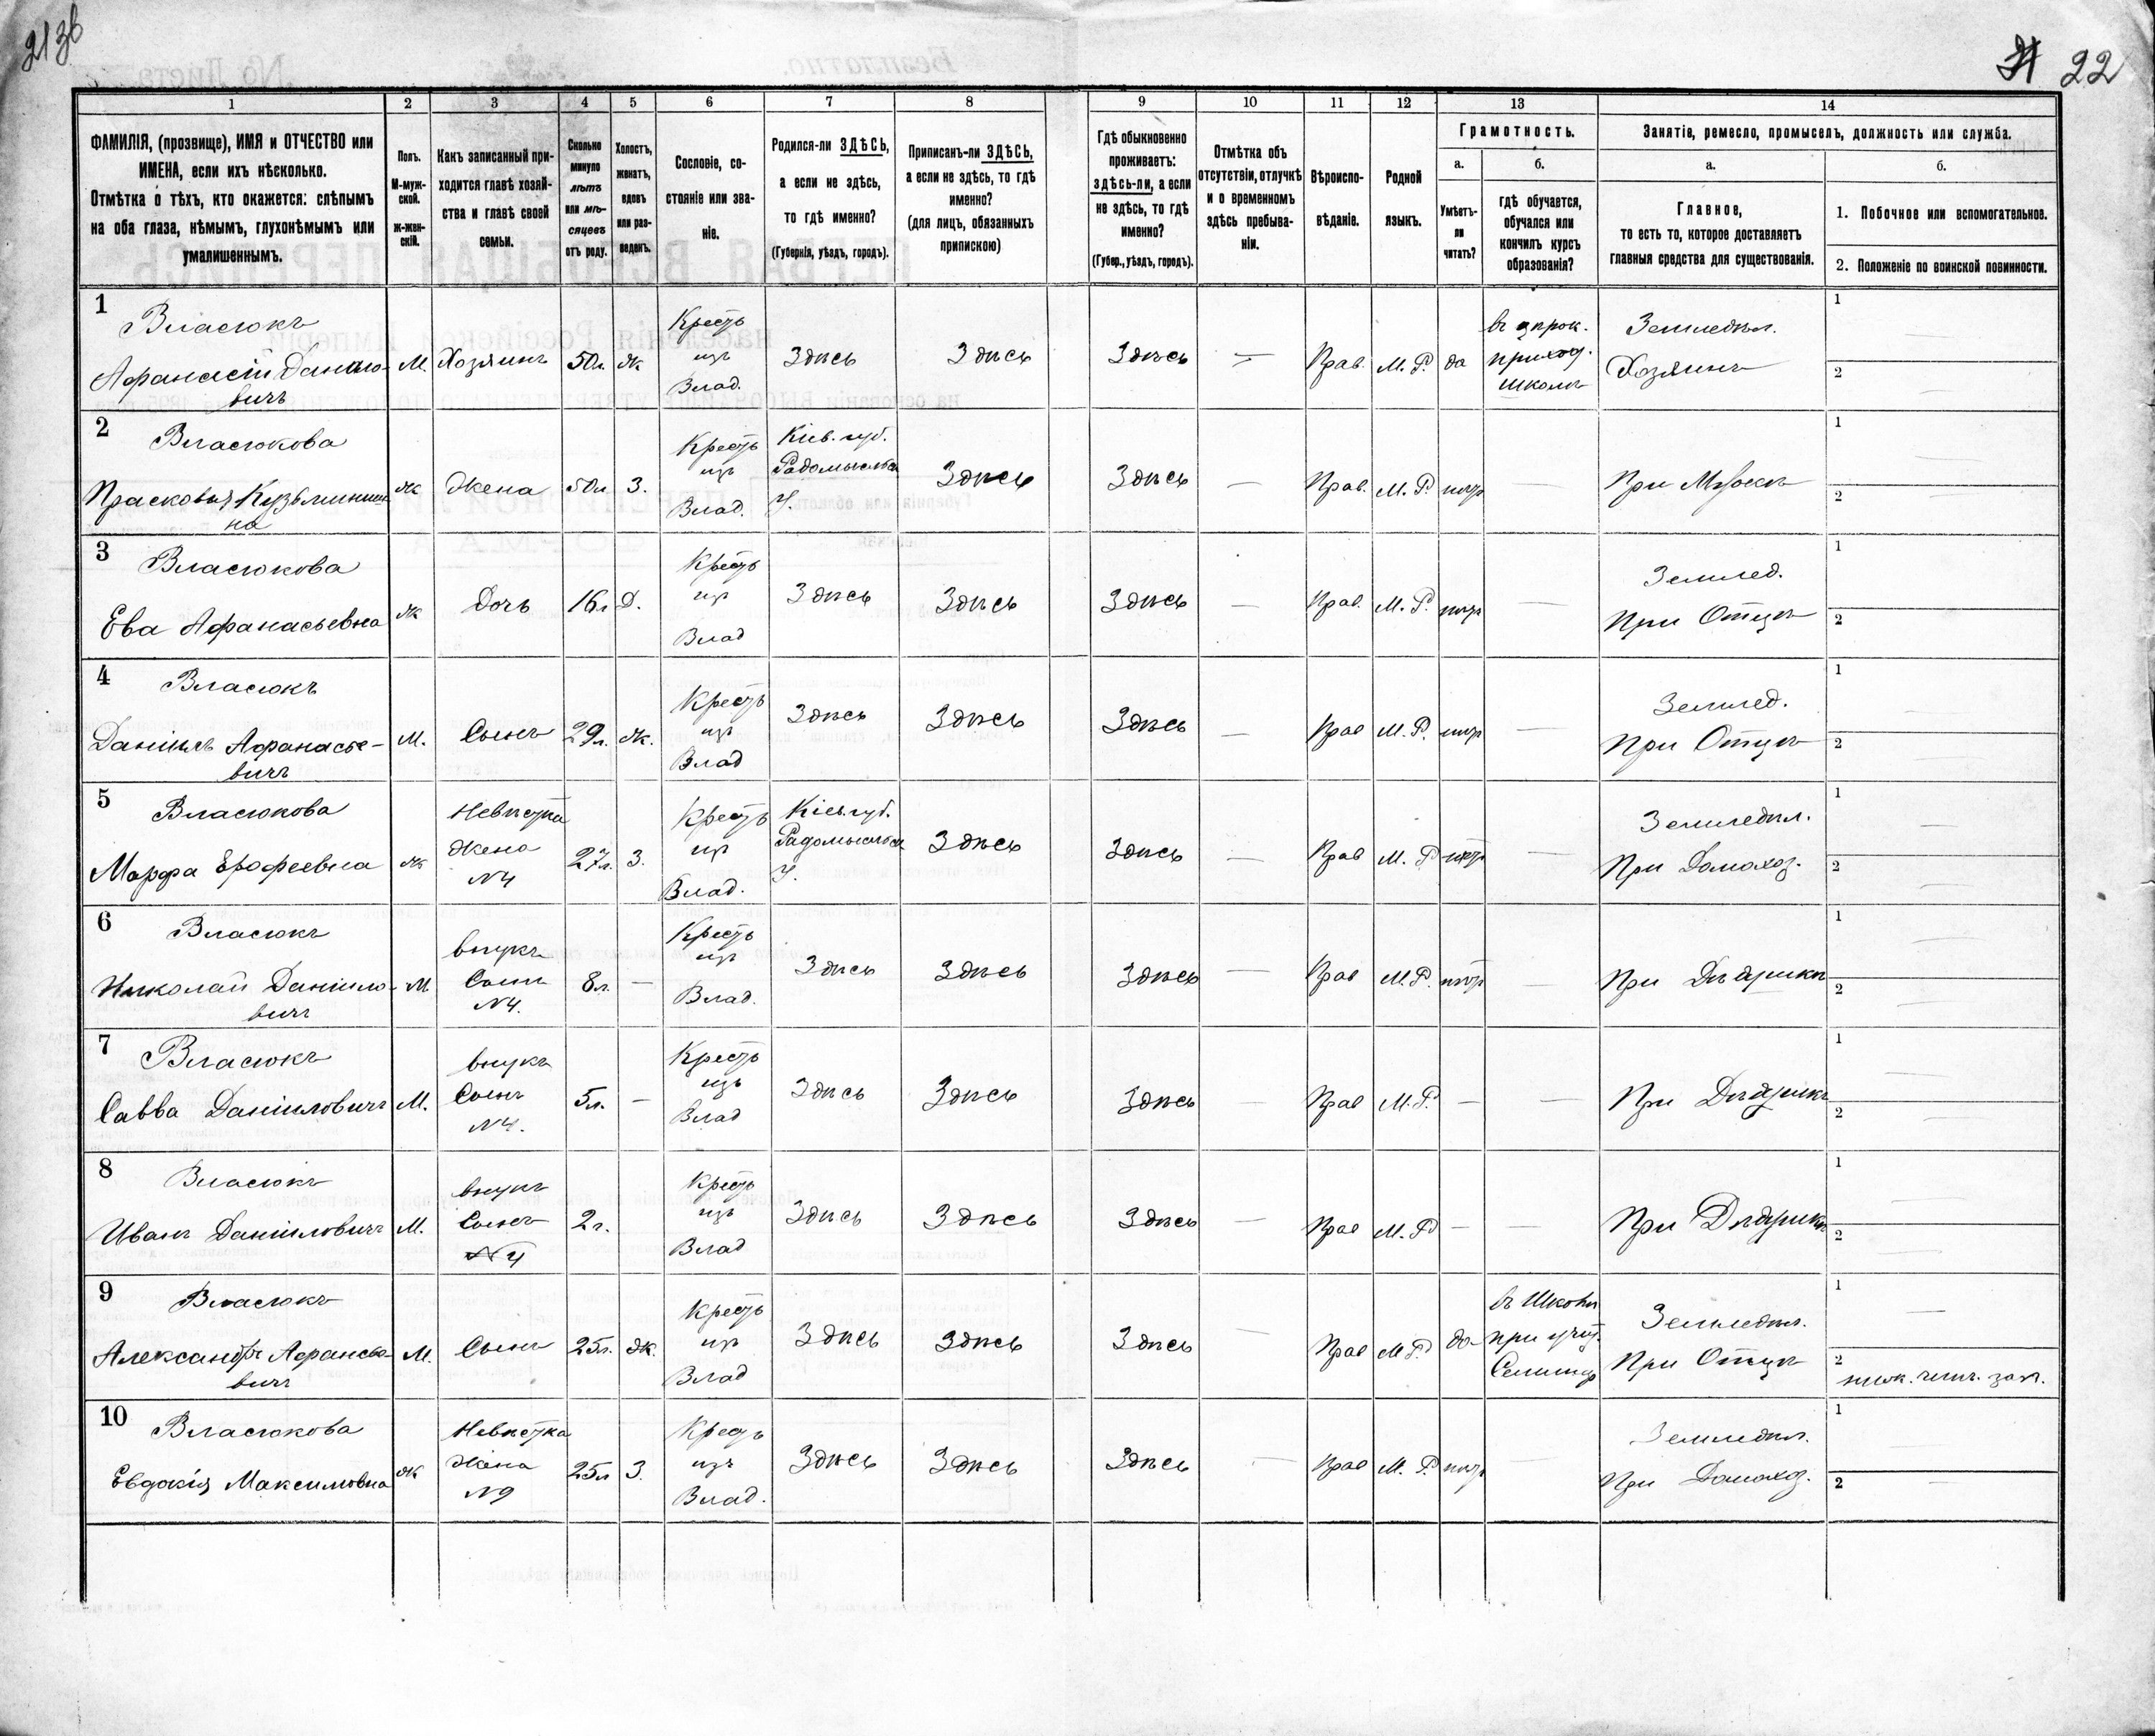 213б
21 22
1 2 3 4 5 6 7 8 9 10 11 12 13 14
ФАМИЛІЯ, (прозвище), ИМЯ и ОТЧЕСТВО или
ИМЕНА, если ихъ нѣсколько.
Отмѣтка о тѣхъ, кто окажется: слѣпымъ
на оба глаза, нѣмымъ, глухонѣмымъ или
умалишеннымъ.
Полъ.
М-муж-
ской.
Ж-жен-
скій.
Какъ записанный при-
ходится главѣ хозяй-
ства и главѣ своей
семьи.
Сколько
минуло
лѣтъ
или мѣ-
сяцевъ
отъ роду.
Холостъ,
женатъ,
вдовъ
или раз-
веденъ.
Сословіе, со-
стояніе или зва-
ніе.
Родился-ли ЗДѢСЬ,
а если не здѣсь,
то гдѣ именно?
(Губернія, уѣздъ, городъ).
Приписанъ-ли ЗДѢСЬ,
а если не здѣсь, то гдѣ
именно?
(для лицъ, обязанныхъ
припискою)
Гдѣ обыкновенно
проживаетъ:
здѣсь-ли, а если
не здѣсь, то гдѣ
именно?
(Губер., уѣздъ, городъ).
Отмѣтка объ
отсутствіи, отлучкѣ
и о временномъ
здѣсь пребыва-
ніи.
Вѣроиспо-
вѣданіе.
Родной
языкъ.
Грамотность.
а.
Умѣетъ-
ли
читать?
б.
гдѣ обучается,
обучался или
кончилъ курсъ
образованія?
Занятіе, ремесло, промыселъ, должность или служба.
а.
Главное,
то есть то, которое доставляетъ
главныя средства для существованія.
б.
1. Побочное или вспомогательное.
2. Положеніе по воинской повинности.
1
Власюкъ
Афанасій Данило-
вичъ
М. Хозяинъ 50л. Ж
Кресть
изъ
Влад.
Здѣсь Здѣсь Здѣсь — Прав. М. Р. да
приход.
школѣ
Земледѣл.
Хозяинъ
1
2
2
Власюкова
Прасковья Кузьминиш
на
Ж Жена 50л З.
Кресть
изъ
Влад.
Кіев. губ.
Радомысльск
У.
Здѣсь Здѣсь — Прав. М. Р. нѣтъ —
При Мужѣ
1
2
3
Власюкова
Ева Афанасьевна
Ж Дочь 16л Д.
Кресть
изъ
Влад
Здѣсь Здѣсь Здѣсь — Прав. М. Р. нѣтъ —
Землед.
При Отцѣ
1
2
4
Власюкъ
Даніилъ Афанасье-
вичъ
М. Сынъ 29л. Ж.
Кресть
изъ
Влад
Здѣсь Здѣсь Здѣсь — Прав М. Р. нѣтъ —
Землед.
При Отцѣ
1
2
5
Власюкова
Марфа Ерофеевна
Ж
Невѣстка
Жена
N4
27л. З.
Кресть
изъ
Влад.
Кіев. губ.
Радомысльск
У.
Здѣсь Здѣсь — Прав М. Р нѣтъ —
Земледѣл.
При Домохоз.
1
2
6
Власюкъ
Николай Даниило-
вичъ
М.
внукъ
Сынъ
N4.
8л. —
Кресть
изъ
Влад.
Здѣсь Здѣсь Здѣсь — Прав М. Р. нѣтъ —
При Дѣдушкѣ
1
2
7
Власюкъ
Савва Даніиловичъ
М.
внукъ
Сынъ
N4.
5л. —
Кресть
изъ
Влад
Здѣсь Здѣсь Здѣсь — Прав М. Р. — —
При Дѣдушкѣ
1
2
8
Власюкъ
Иванъ Даніиловичъ
М.
внукъ
Сынъ
N4
2г.
Кресть
изъ
Влад
Здѣсь Здѣсь Здѣсь — Прав М. Р — —
При Дѣдушкѣ
1
2
9
Власюкъ
Александръ Афанасье-
вичъ
М. Сынъ 25л. Ж.
Кресть
изъ
Влад
Здѣсь Здѣсь Здѣсь — Прав М. Р. да
въ Школѣ
при учит.
Семинар
Земледѣл.
При Отцѣ
1 —
2
ниж. чинъ зап.
10
Власюкова
Евдокія Максимовна
Ж
Невѣстка
Жена
N9
25л З.
Кресть
изъ
Влад.
Здѣсь Здѣсь Здѣсь — Прав М. Р. нѣтъ
Земледѣл.
При Домохоз.
1
2